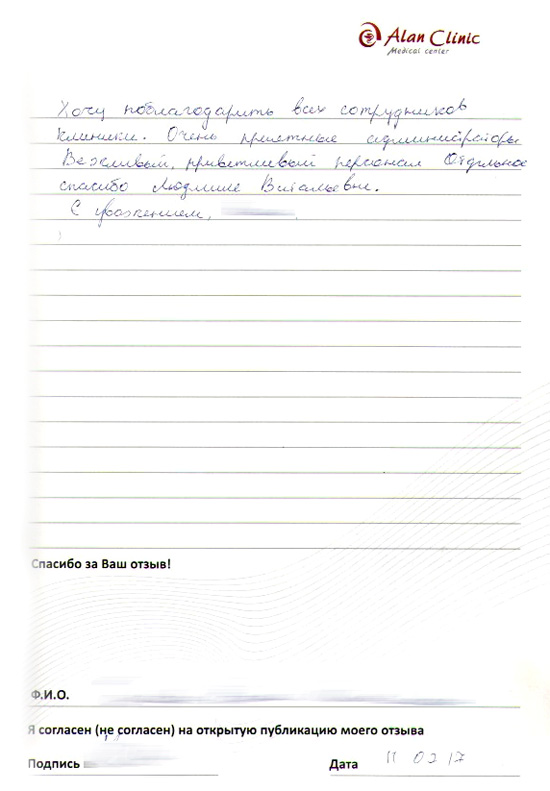 Alan Clinic
Medical center
Хочу поблагодарить всех сотрудников
клиники. Очень приятные администраторы
Вежливый, приветливый персонал Отдельное
спасибо Людмиле Витальевне.
С уважением,
Спасибо за Ваш отзыв!
Ф.И.О.
Я согласен (не согласен) на открытую публикацию моего отзыва
Подпись Дата 11 02 17